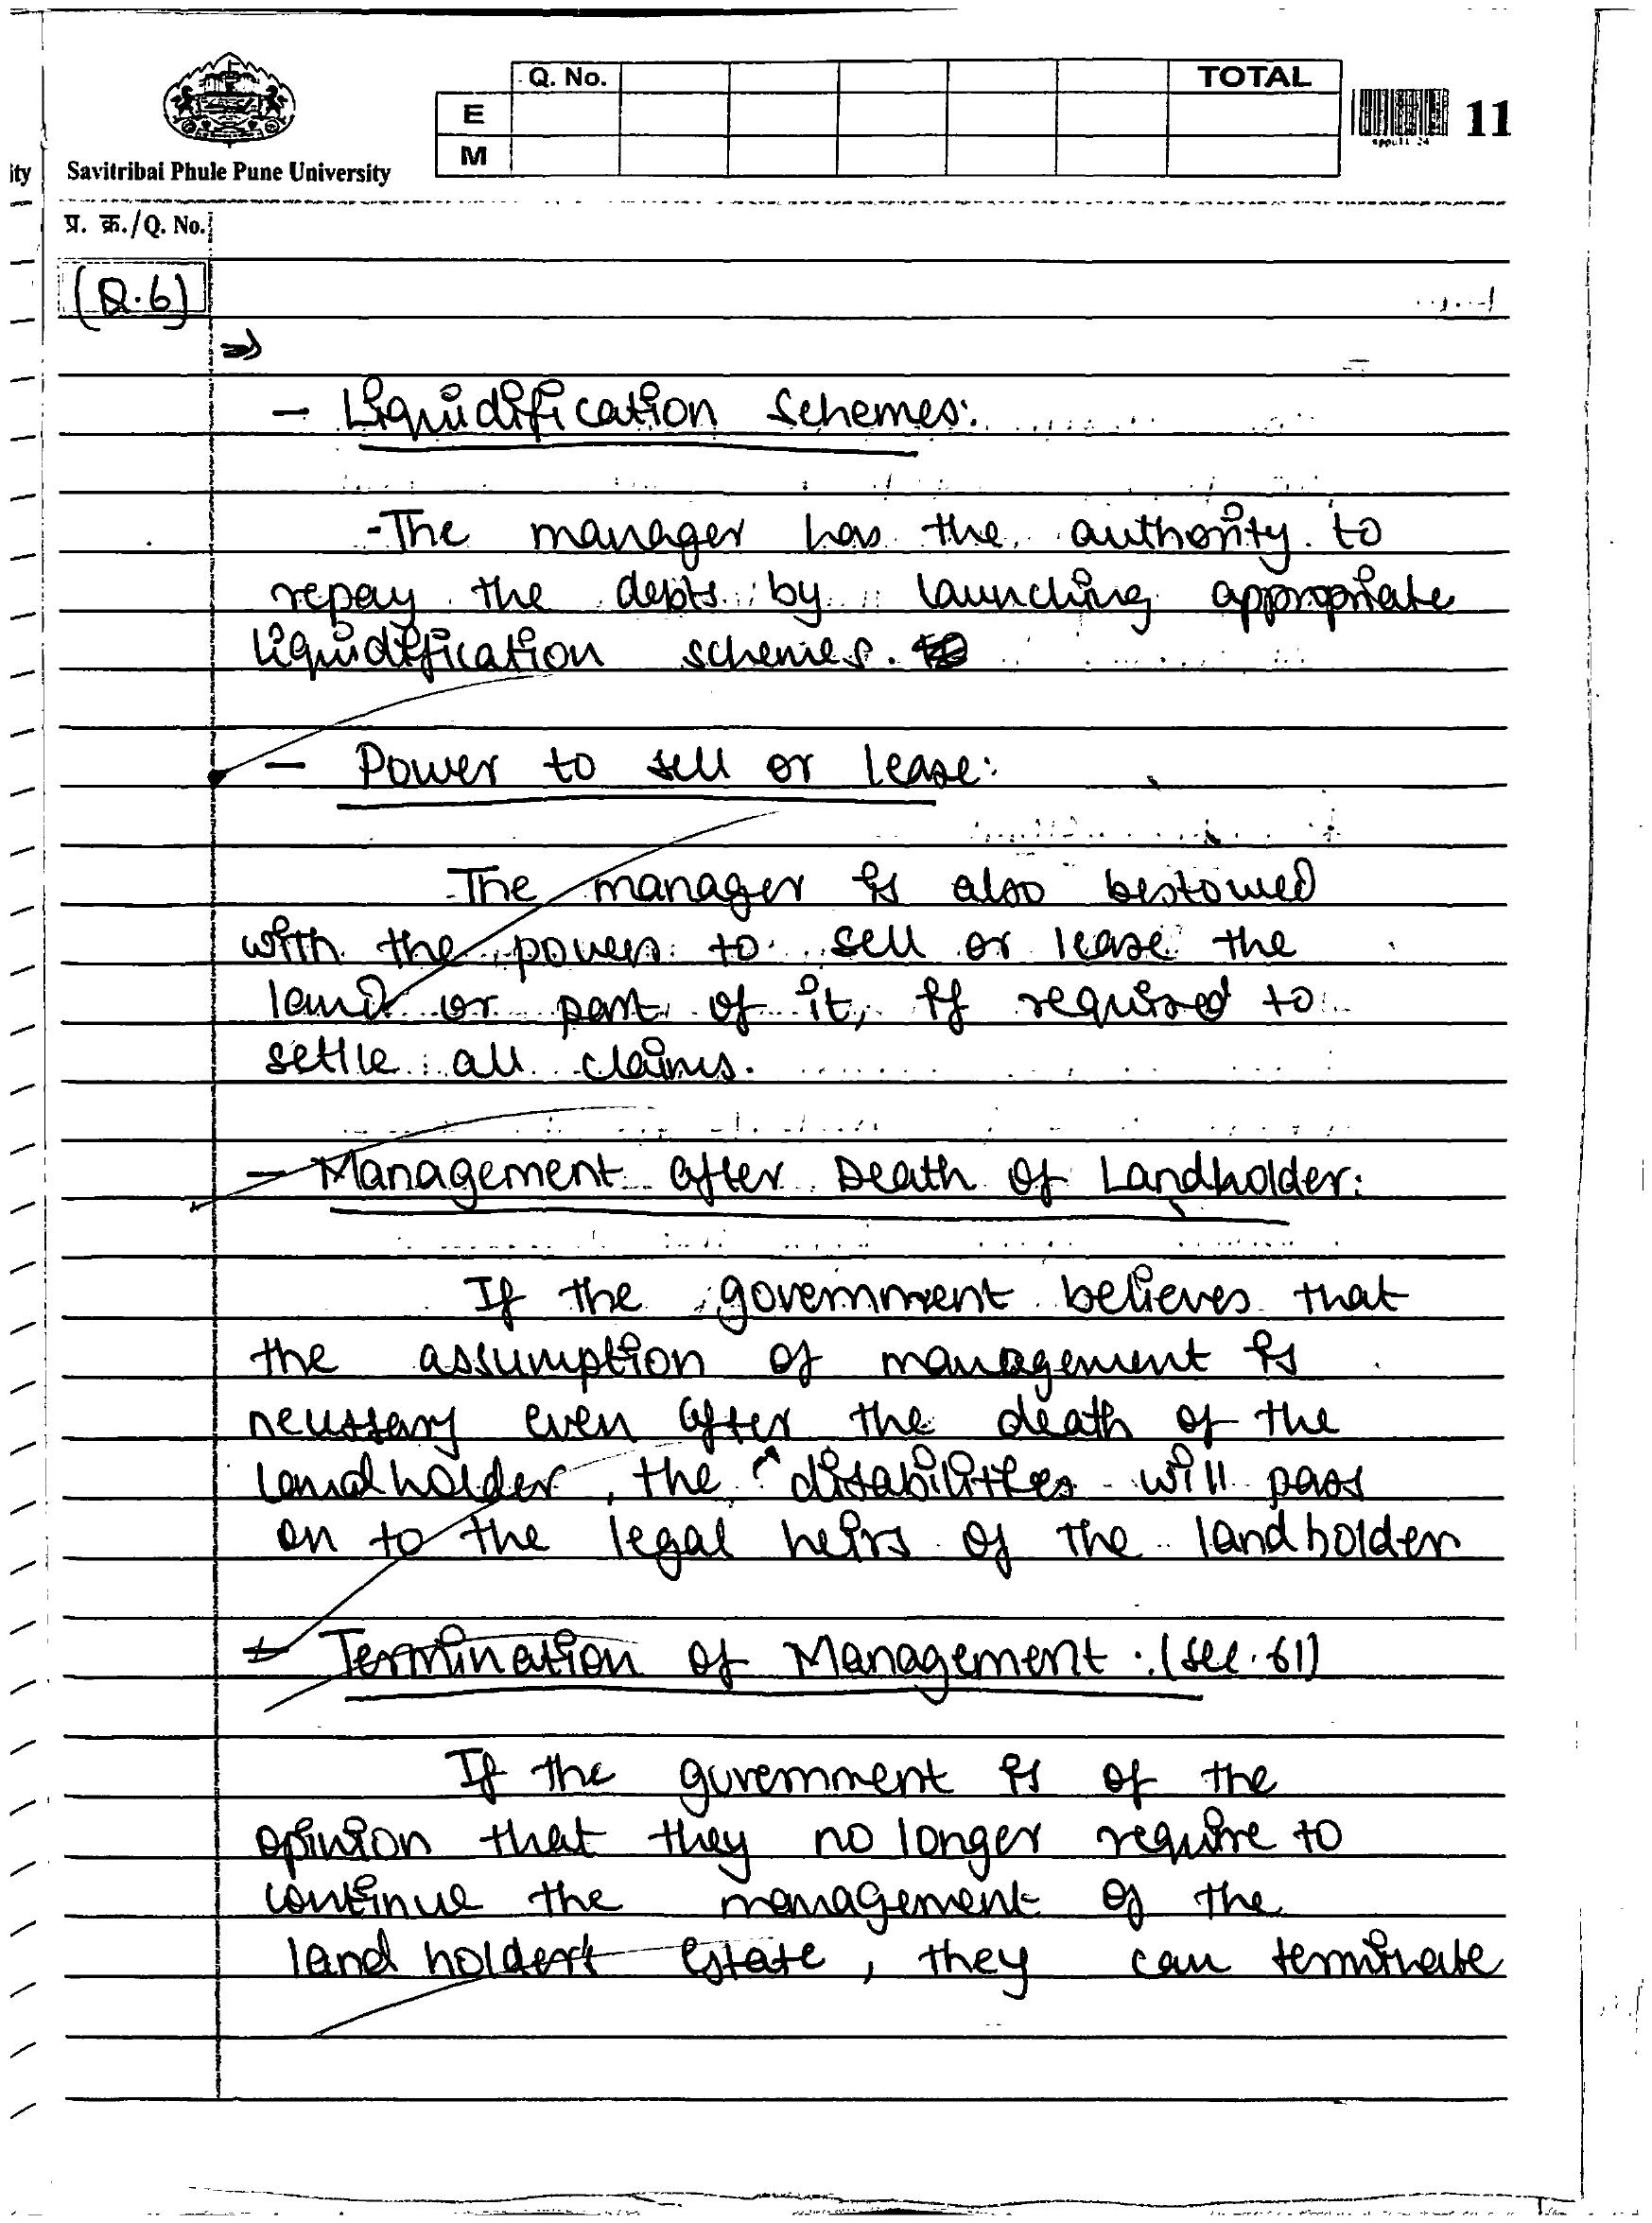 Q. No. TOTAL
E
M
11
Savitribai Phule Pune University
ity
प्र. क्र./Q. No.
(Q.6)
⇒
- Liquidification Schemes:
-The manager has the authority to
repay the debts by launching appropriate
liquidification schemes.
- Power to sell or lease:
The manager is also bestowed
with the power to sell or lease the
land or part of it, if required to
settle all claims.
- Management after Death of Landholder:
If the government believes that
the assumption of management is
necessary even after the death of the
landholder, the disabilities will pass
on to the legal heirs of the landholder
- Termination of Management: (sec. 61)
If the government is of the
opinion that they no longer require to
continue the management of the
land holder's estate, they can terminate